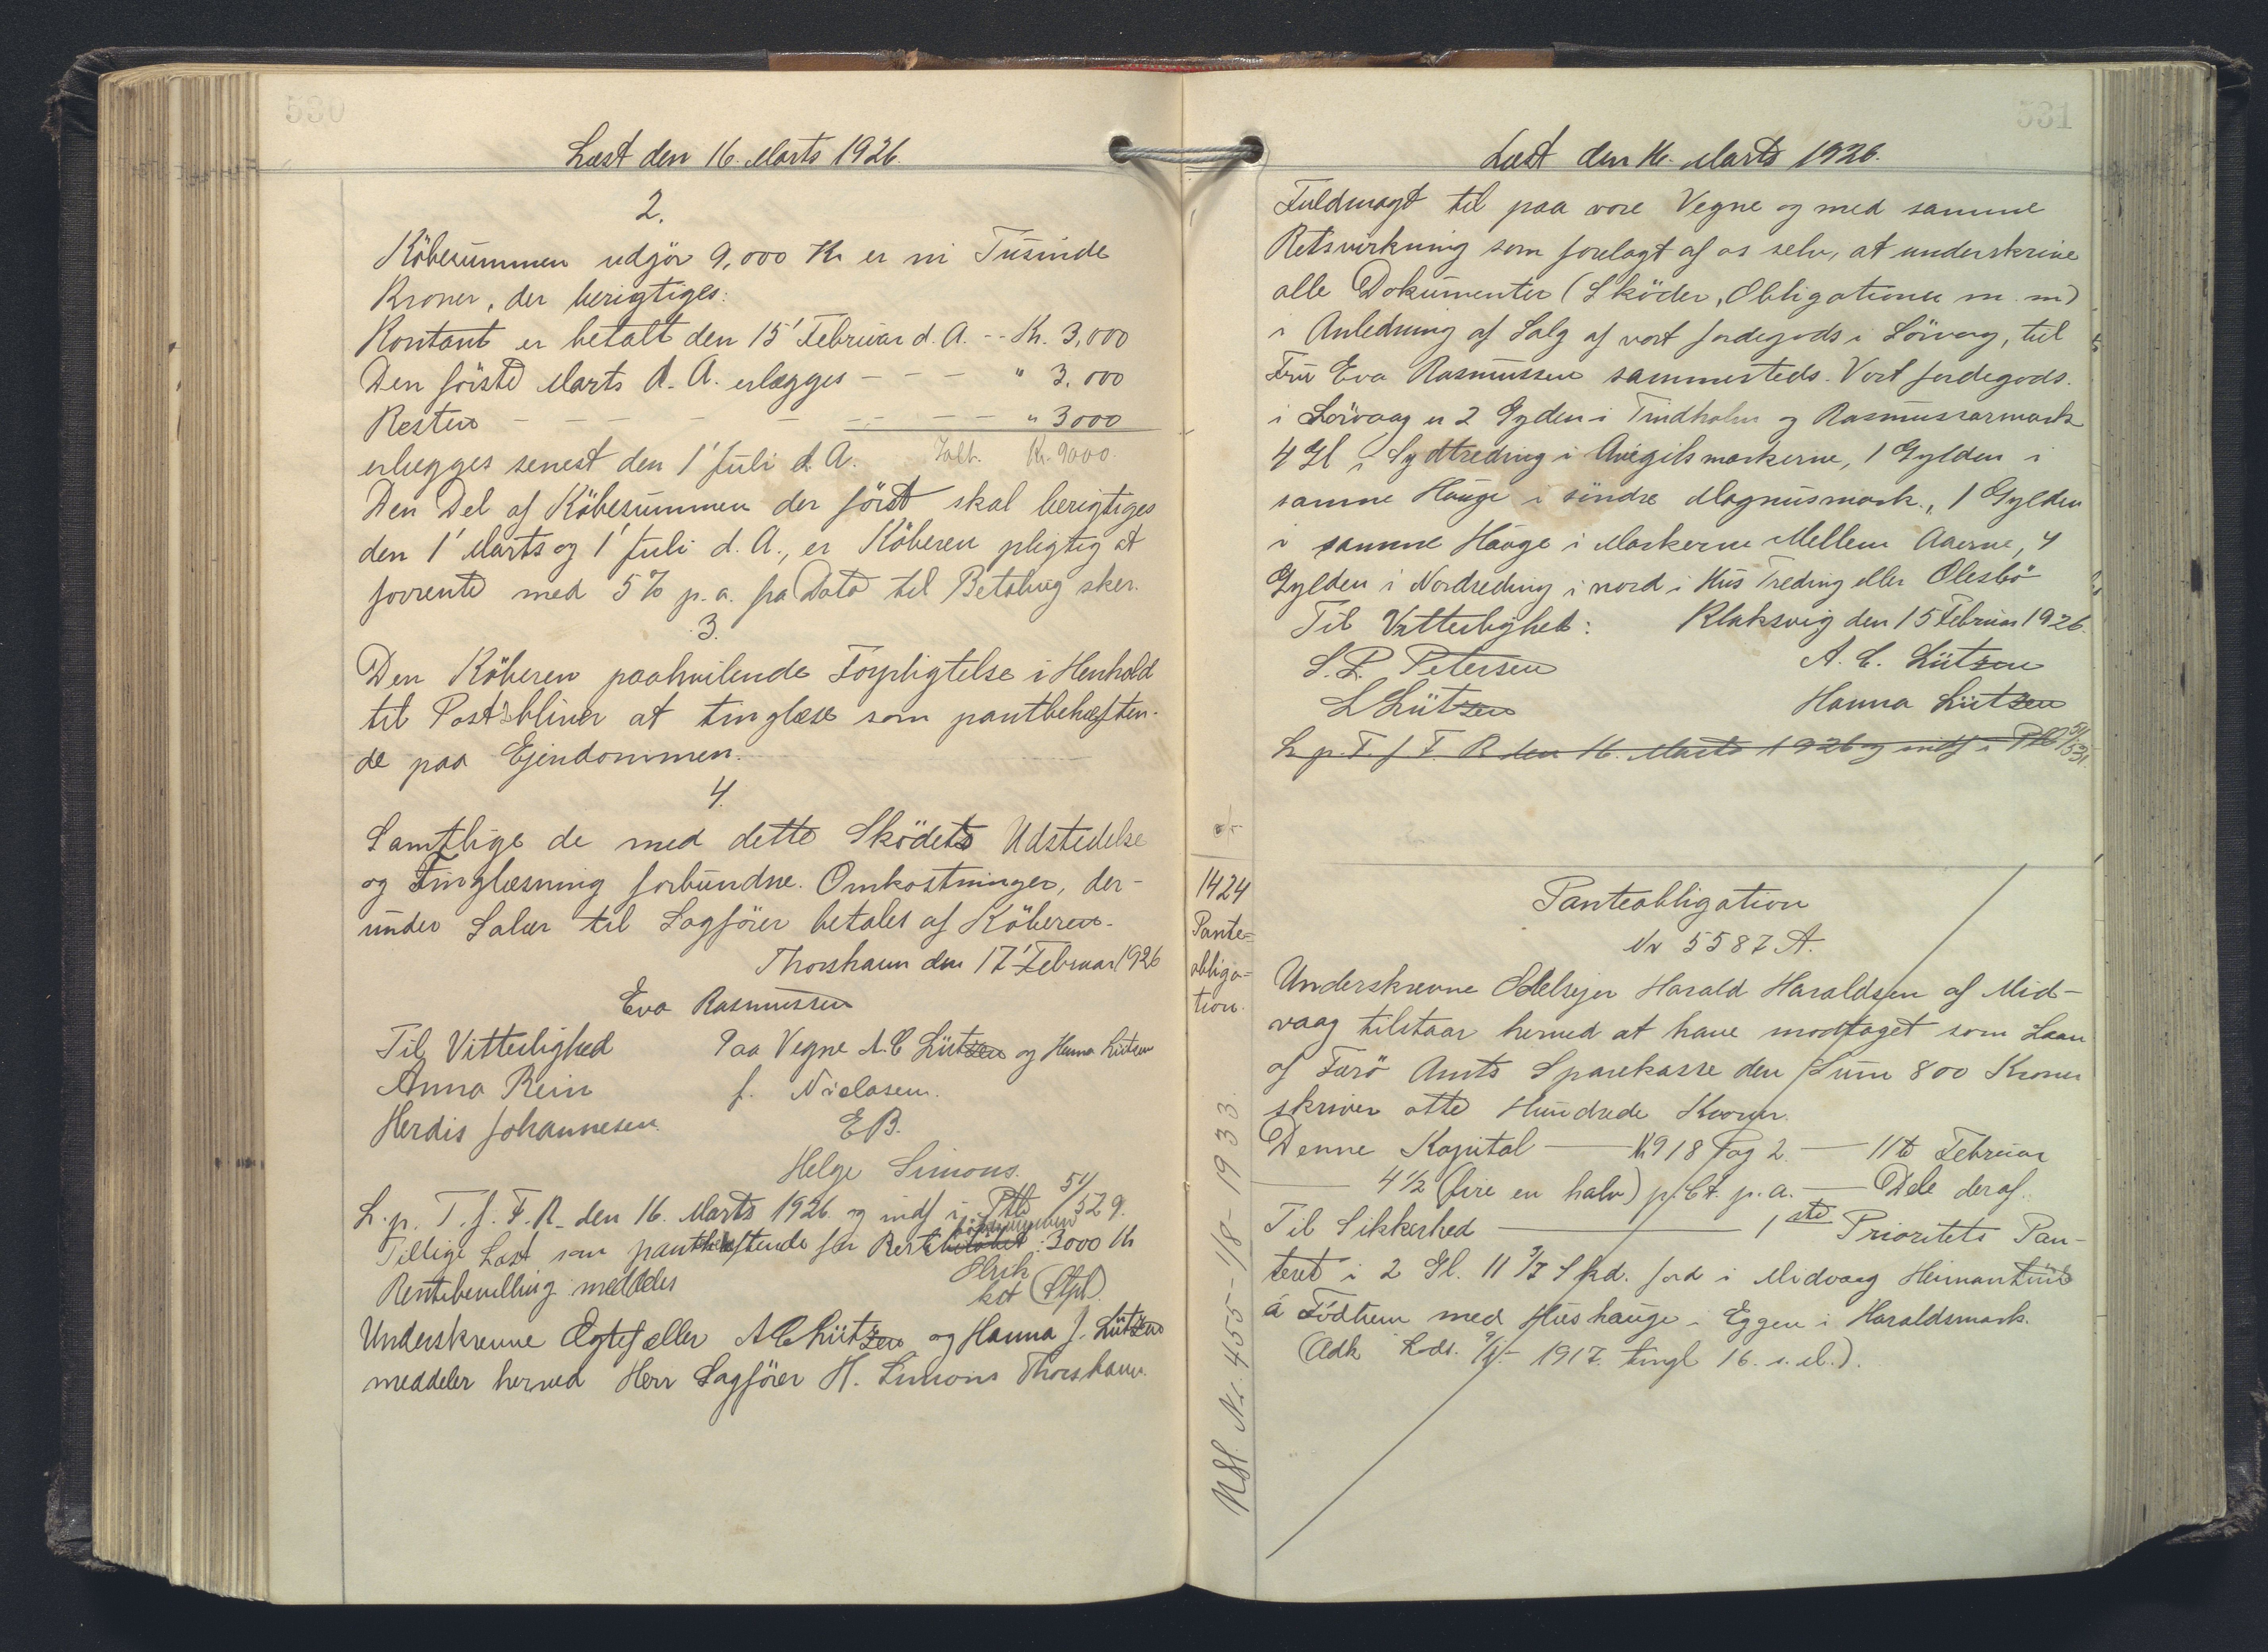 530
Læst den 16. Marts 1926.
2.
Köbesummen udgjör 9,000 Kr er ni Tusinde
Kroner, der berigtiges:
Kontant er betalt den 15' Februar d. A. -- Kr. 3,000
Den förste Marts d. A. erlægges - - - " 3,000
Resten - - - - - - - - " 3000
erlægges senest den 1' Juli d. A. Ialt. Kr. 9000.
Den Del af Köbesummen der först skal berigtiges
den 1' Marts og 1' Juli d. A., er Köberen pligtig at
forrente med 5 % p. a. fra Dato til Betaling sker.
3.
Den Köberen paahvilende Forpligtelse i Henhold
til Post 2 bliver at tinglæse som pantbehæften-
de paa Ejendommen.
4.
Samtlige de med dette Sködets Udstedelse
og Tinglæsning forbundne Omkostninger, der-
under Salær til Sagförer betales af Köberen.
Thorshavn den 17' Februar 1926
Eva Rasmussen
Til Vitterlighed Paa Vegne A. C Lützen og Hanna Lützen
Anna Rein J. Niclasen.
Herdis Johannesen. EB.
Helge Simons.
L. p. T. f. F. R. den 16. Marts 1926 og indf i Ptb 51/529.
Tillige Læst som pantbehæftende for Restköbesummen 3000 Kr
Rentebevilling meddeles
kst
Underskrevne Ægtefæller A C Lützen og Hanna J. Lützen
meddeler herved Herr Sagförer H. Simons Thorshavn.
531
Læst den 16. Marts 1926.
Fuldmagt til paa vore Vegne og med samme
Retsvirkning som forelagt af os selv, at underskrive
alle Dokumenter (Sköder, Obligationer m. m)
i Anledning af Salg af vort Jordegods i Sörvaag, til
Fru Eva Rasmussen sammesteds. Vort Jordegods
i Sörvaag er 2 Gylden i Tindholm og Rasmussarmark
4 Gl i Sydtreding i Avegilsmarkerne, 1 Gylden i
samme Hauge i söndre Magnusmark., 1 Gylden
i samme Hauge i Markerne Mellem Aaerne, 4
Gylden i Nordreding i nord i Hus Treding eller Olesbö
Til Vitterlighed: Klaksvig den 15 Februar 1926.
S. P. Petersen A. C. Lützen
L Lützen Hanna Lützen
L. p. T. f F. R den 16. Marts 1926 og indf i Ptb 51/531.
1424
Pante=
obliga=
tion.
Panteobligation
Nr 5587 A.
Underskrevne Odelsejer Harald Haraldsen af Mid-
vaag tilstaar herved at have modtaget som Laan
af Færö Amts Sparekasse den Sum 800 Kroner
skriver otte Hundrede Kroner.
Denne Kapital — 1918 Pag 2. — 11te Februar
— 4 1/2 (fire en halv) p. Ct. p. a. — Dele deraf.
Til Sikkerhed — 1ste Prioritets Pan-
teret i 2 Gl. 11 3/7 Skd. Jord i Midvaag Heimantún
á Tødtum med Hushauge i Eggen i Haraldsmark.
(Adk Lods. 1917. tingl 16. s. M.).
Udsl. Nr. 455-1/8-1933.